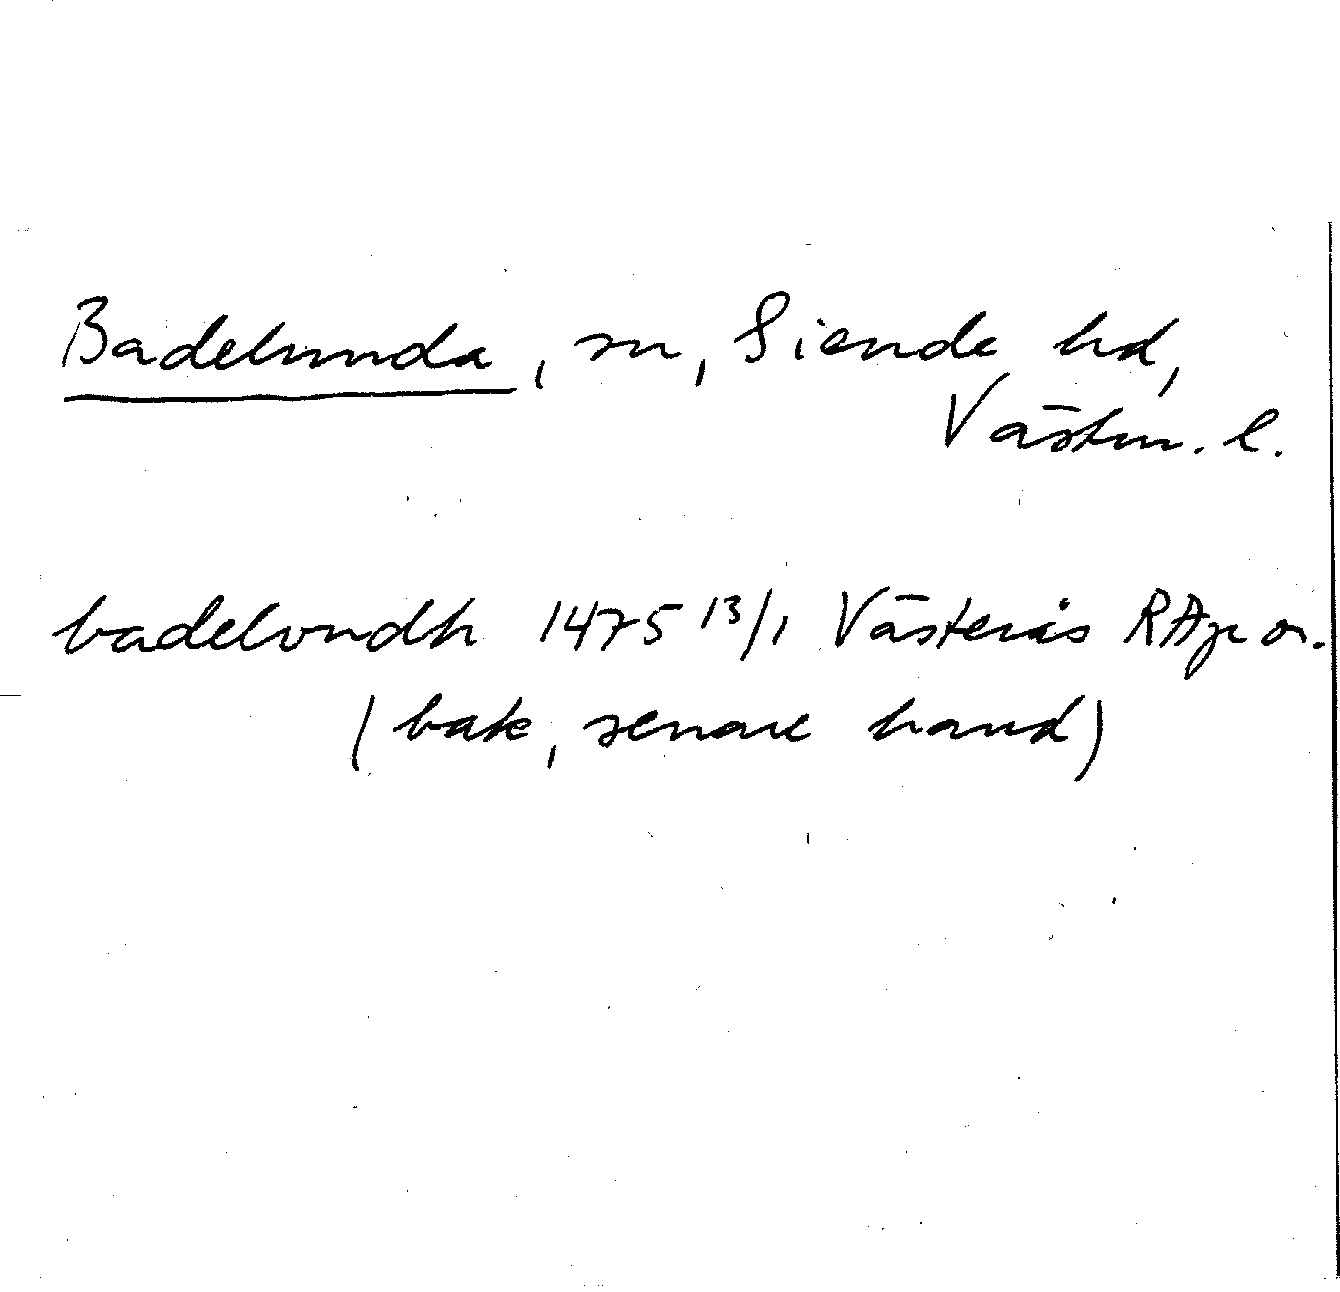 Badelunda, sn, Siende hd,
Västm. l.
badelvndh 1475 13/1 Västerås RAp or.
(bak, senare hand)